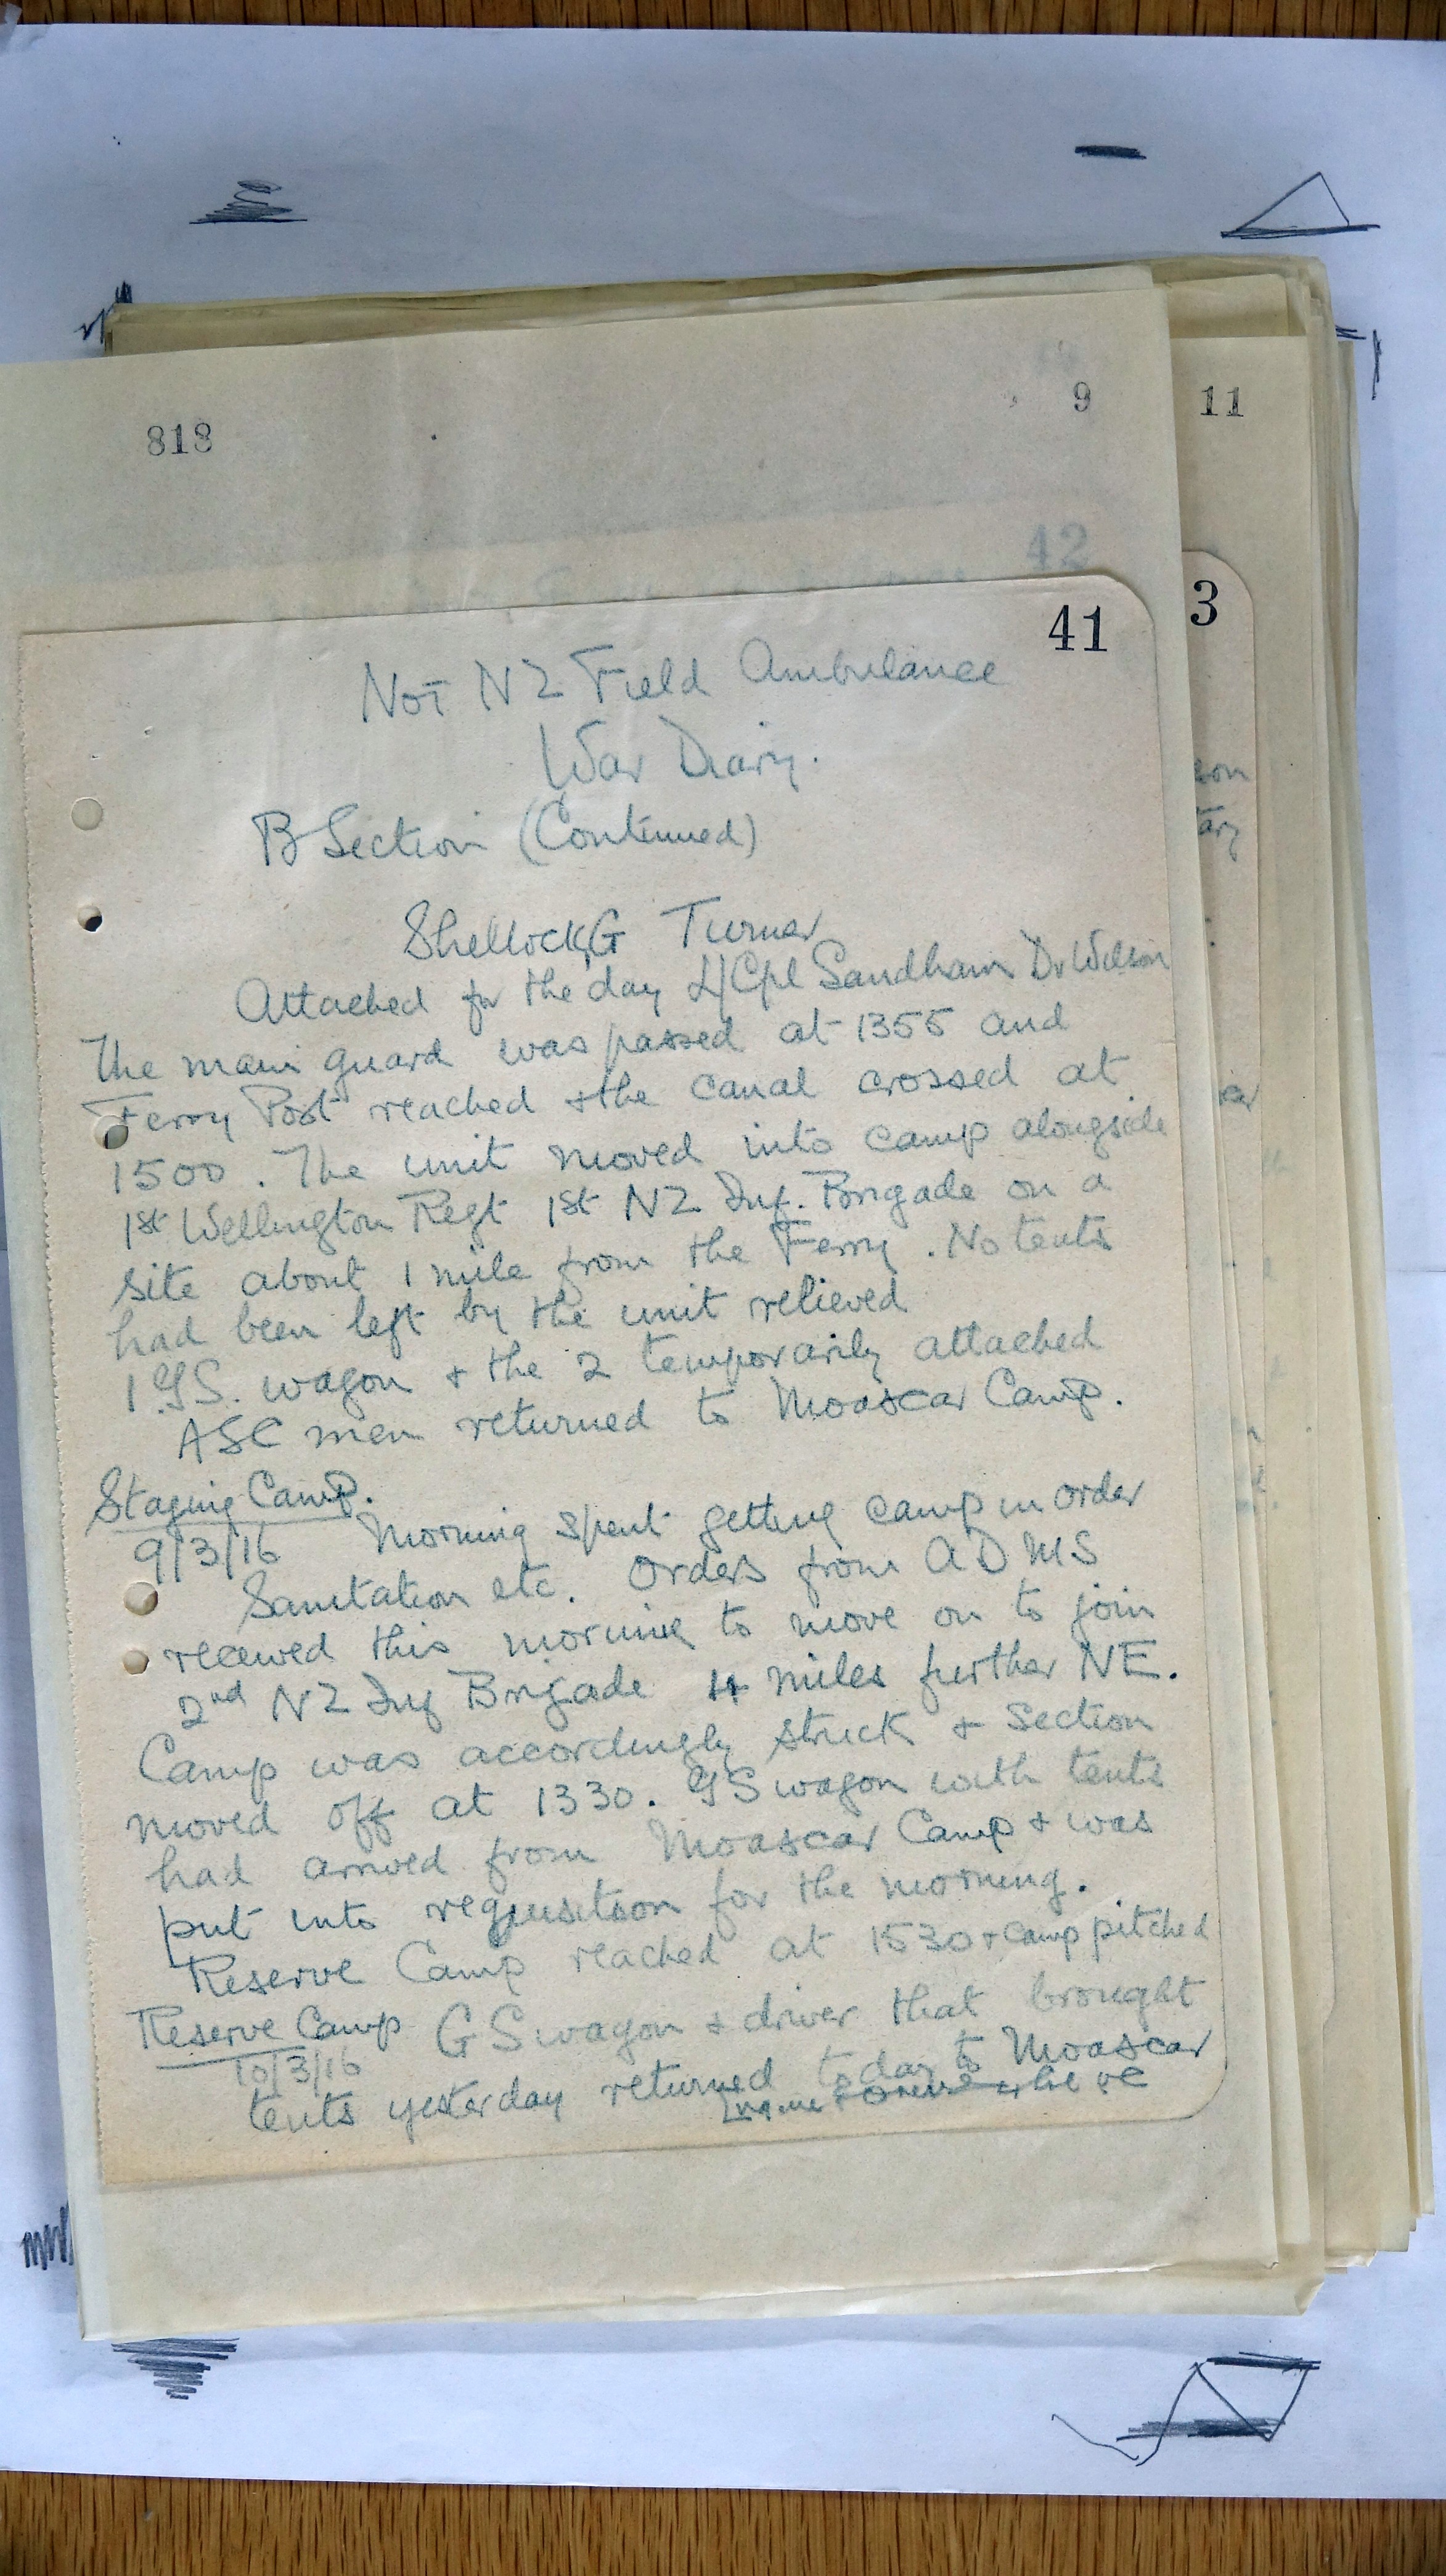 818
9
11
42
41
3
Not NZ Field Ambulance
War Diary.
B Section (Continued)
Shellock, G Turner
Attached for the day L/Cpl Sandham Dr Wilson
The main guard was passed at 1355 and
Ferry Post reached & the canal crossed at
1500. The unit moved into camp alongside
1st Wellington Regt 1st NZ Inf. Brigade on a
site about 1 mile from the Ferry. No tents
had been left by the unit relieved
1 G.S. wagon & the 2 temporarily attached
ASC men returned to Moascar Camp.
Staging Camp.
9/3/16 Morning spent getting camp in order
Sanitation etc. Orders from ADMS
received this morning to move on to join
2nd NZ Inf Brigade 4 miles further NE.
Camp was accordingly struck & Section
moved off at 1330. GS wagon with tents
had arrived from Moascar Camp & was
put into requisition for the morning.
Reserve Camp reached at 1530 & camp pitched
Reserve Camp GS wagon & driver that brought
10/3/16
tents yesterday returned today to Moascar
son
ary